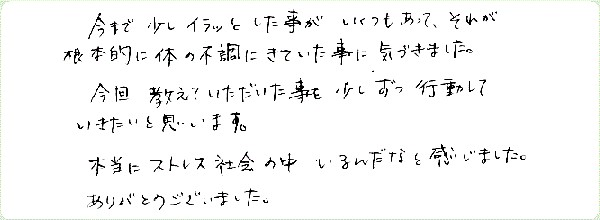 今まで 少しイラッとした事が いくつもあって、それが
根本的に体の不調にきていた事に 気づきました。
今回 教えていただいた事を 少しずつ 行動して
いきたいと思います。
本当に ストレス社会の中 いるんだなと感じました。
ありがとうございました。